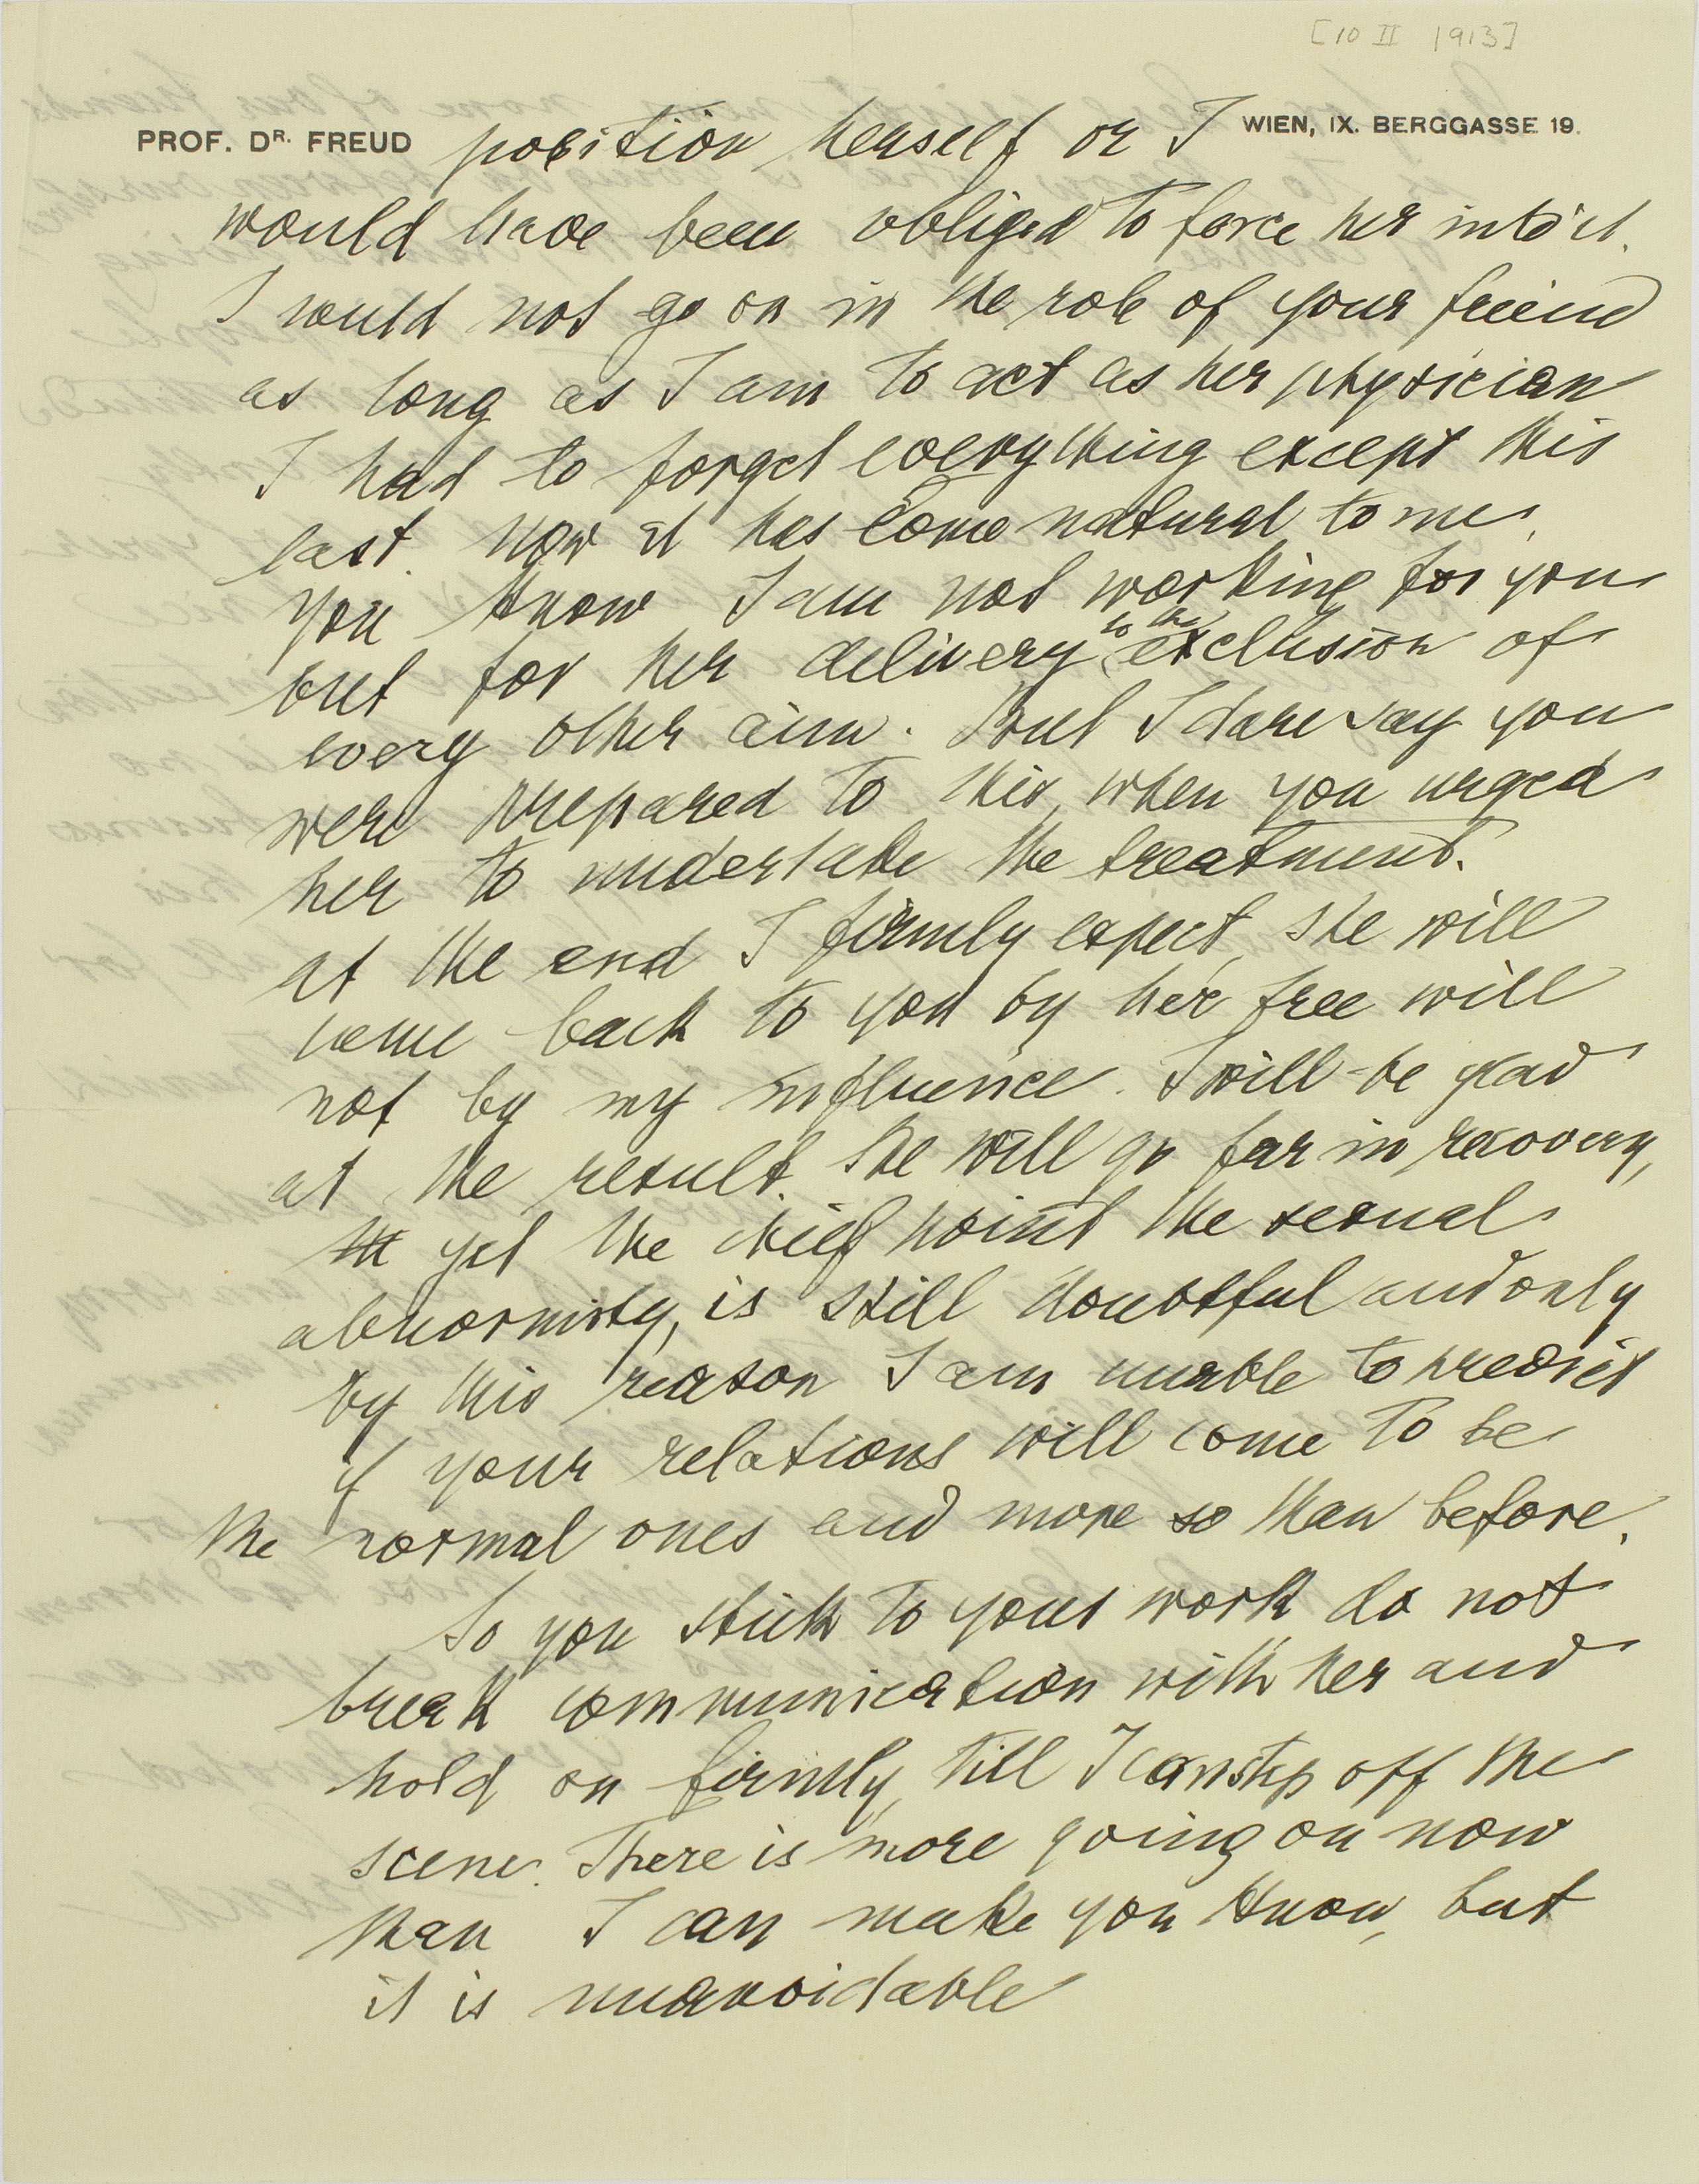 [10 II 1913]
PROF. DR. FREUD
WIEN, IX. BERGGASSE 19.
position herself or I
would have been obliged to force her into it.
I would not go on in the role of your friend
as long as I am to act as her physician
I had to forget everything except this
last. Now it has come natural to me.
You know I am not working for you
but for her delivery to the exclusion of
every other aim. But I dare say you
were prepared to this, when you urged
her to undertake the treatment.
At the end I firmly expect, she will
come back to you by her free will
not by my influence. I will be glad
at the result. She will go far in recovery,
yet the chief point the sexual
abnormity, is still doubtful and only
by this reason I am unable to predict
if your relations will come to be
the normal ones and more so than before.
So you stick to your work do not
break communication with her and
hold on firmly, till I can step off the
scene. There is more going on now
than I can make you know, but
it is unavoidable